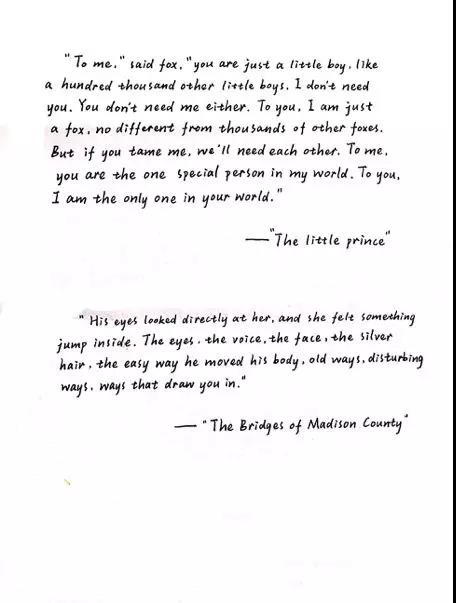 "To me," said fox, "you are just a little boy, like
a hundred thousand other little boys. I don't need
you. You don't need me either. To you, I am just
a fox, no different from thousands of other foxes.
But if you tame me, we'll need each other. To me,
you are the one special person in my world. To you,
I am the only one in your world."
—"The little prince"
"His eyes looked directly at her, and she felt something
jump inside. The eyes, the voice, the face, the silver
hair, the easy way he moved his body, old ways, disturbing
ways, ways that draw you in."
— "The Bridges of Madison County"